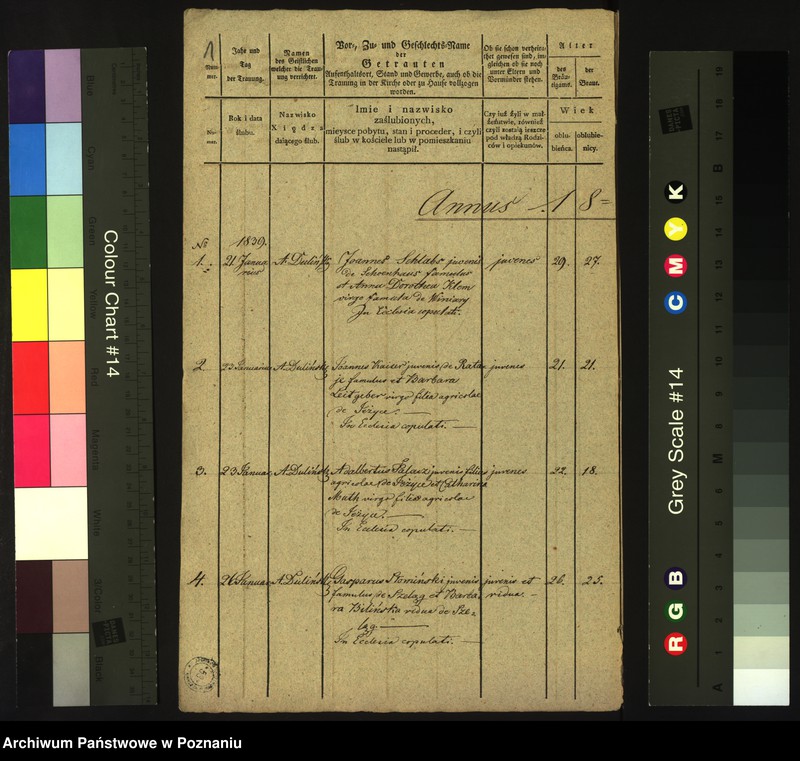 1
Num-
mer.
Jahr und
Tag
der Trauung.
Namen
des Geistlichen
welcher die Trau-
ung verrichtet.
Vor-, Zu- und Geschlechts-Name
der
Getrauten
Aufenthaltsort, Stand und Gewerbe, auch ob die
Trauung in der Kirche oder zu Hause vollzogen
worden.
Ob sie schon verheira-
thet gewesen sind, im-
gleichen ob sie noch
unter Eltern und
Vormünder stehen.
Alter
des
Bräu-
tigams.
der
Braut.
Nu-
mer.
Rok i data
ślubu.
Nazwisko
Xiędza
dającego ślub.
Imie i nazwisko
zaślubionych,
mieysce pobytu, stan i proceder, i czyli
ślub w kościele lub w pomieszkaniu
nastąpił.
Czy iuż żyli w mał-
żeństwie, również
czyli zostaią ieszcze
pod władzą Rodzi-
ców i opiekunów.
Wiek
oblu-
bieńca.
oblubie-
nicy.
Annus 18=
No 1839.
1. 21 Janua- A. Duliński Joannes Schlabs juvenis juvenes 29. 27.
rius de Schrenhaus famulus
et Anna Dorothea Klem
virgo famula de Winiary
In Ecclesia copulati.
2 23 Januarius A. Duliński Joannes juvenis de Rata- juvenes 21. 21.
je famulus et Barbara
Leitgeber virgo filia agricolae
de Jeżyce.
In Ecclesia copulati.
3. 23 Januar. A. Duliński Adalbertus juvenis filius juvenes 22. 18.
agricolae de Jeżyce et Catharina
Muth virgo filia agricolae
de Jeżyce.
In Ecclesia copulati.
4. 26 Januar A. Duliński Gasparus Słomiński juvenis juvenis et 26. 25.
famulus de Szeląg et Barba- vidua.
ra Bilińska vidua de Sze-
ląg.
In Ecclesia copulati.
Colour Chart #14
Blue
Cyan
Green
Yellow
Red
Magenta
White
3/Color
Black
Grey Scale #14
R G B
C M Y K
DANES
PICTA
A
M
B
17
18
19
Archiwum Państwowe w Poznaniu